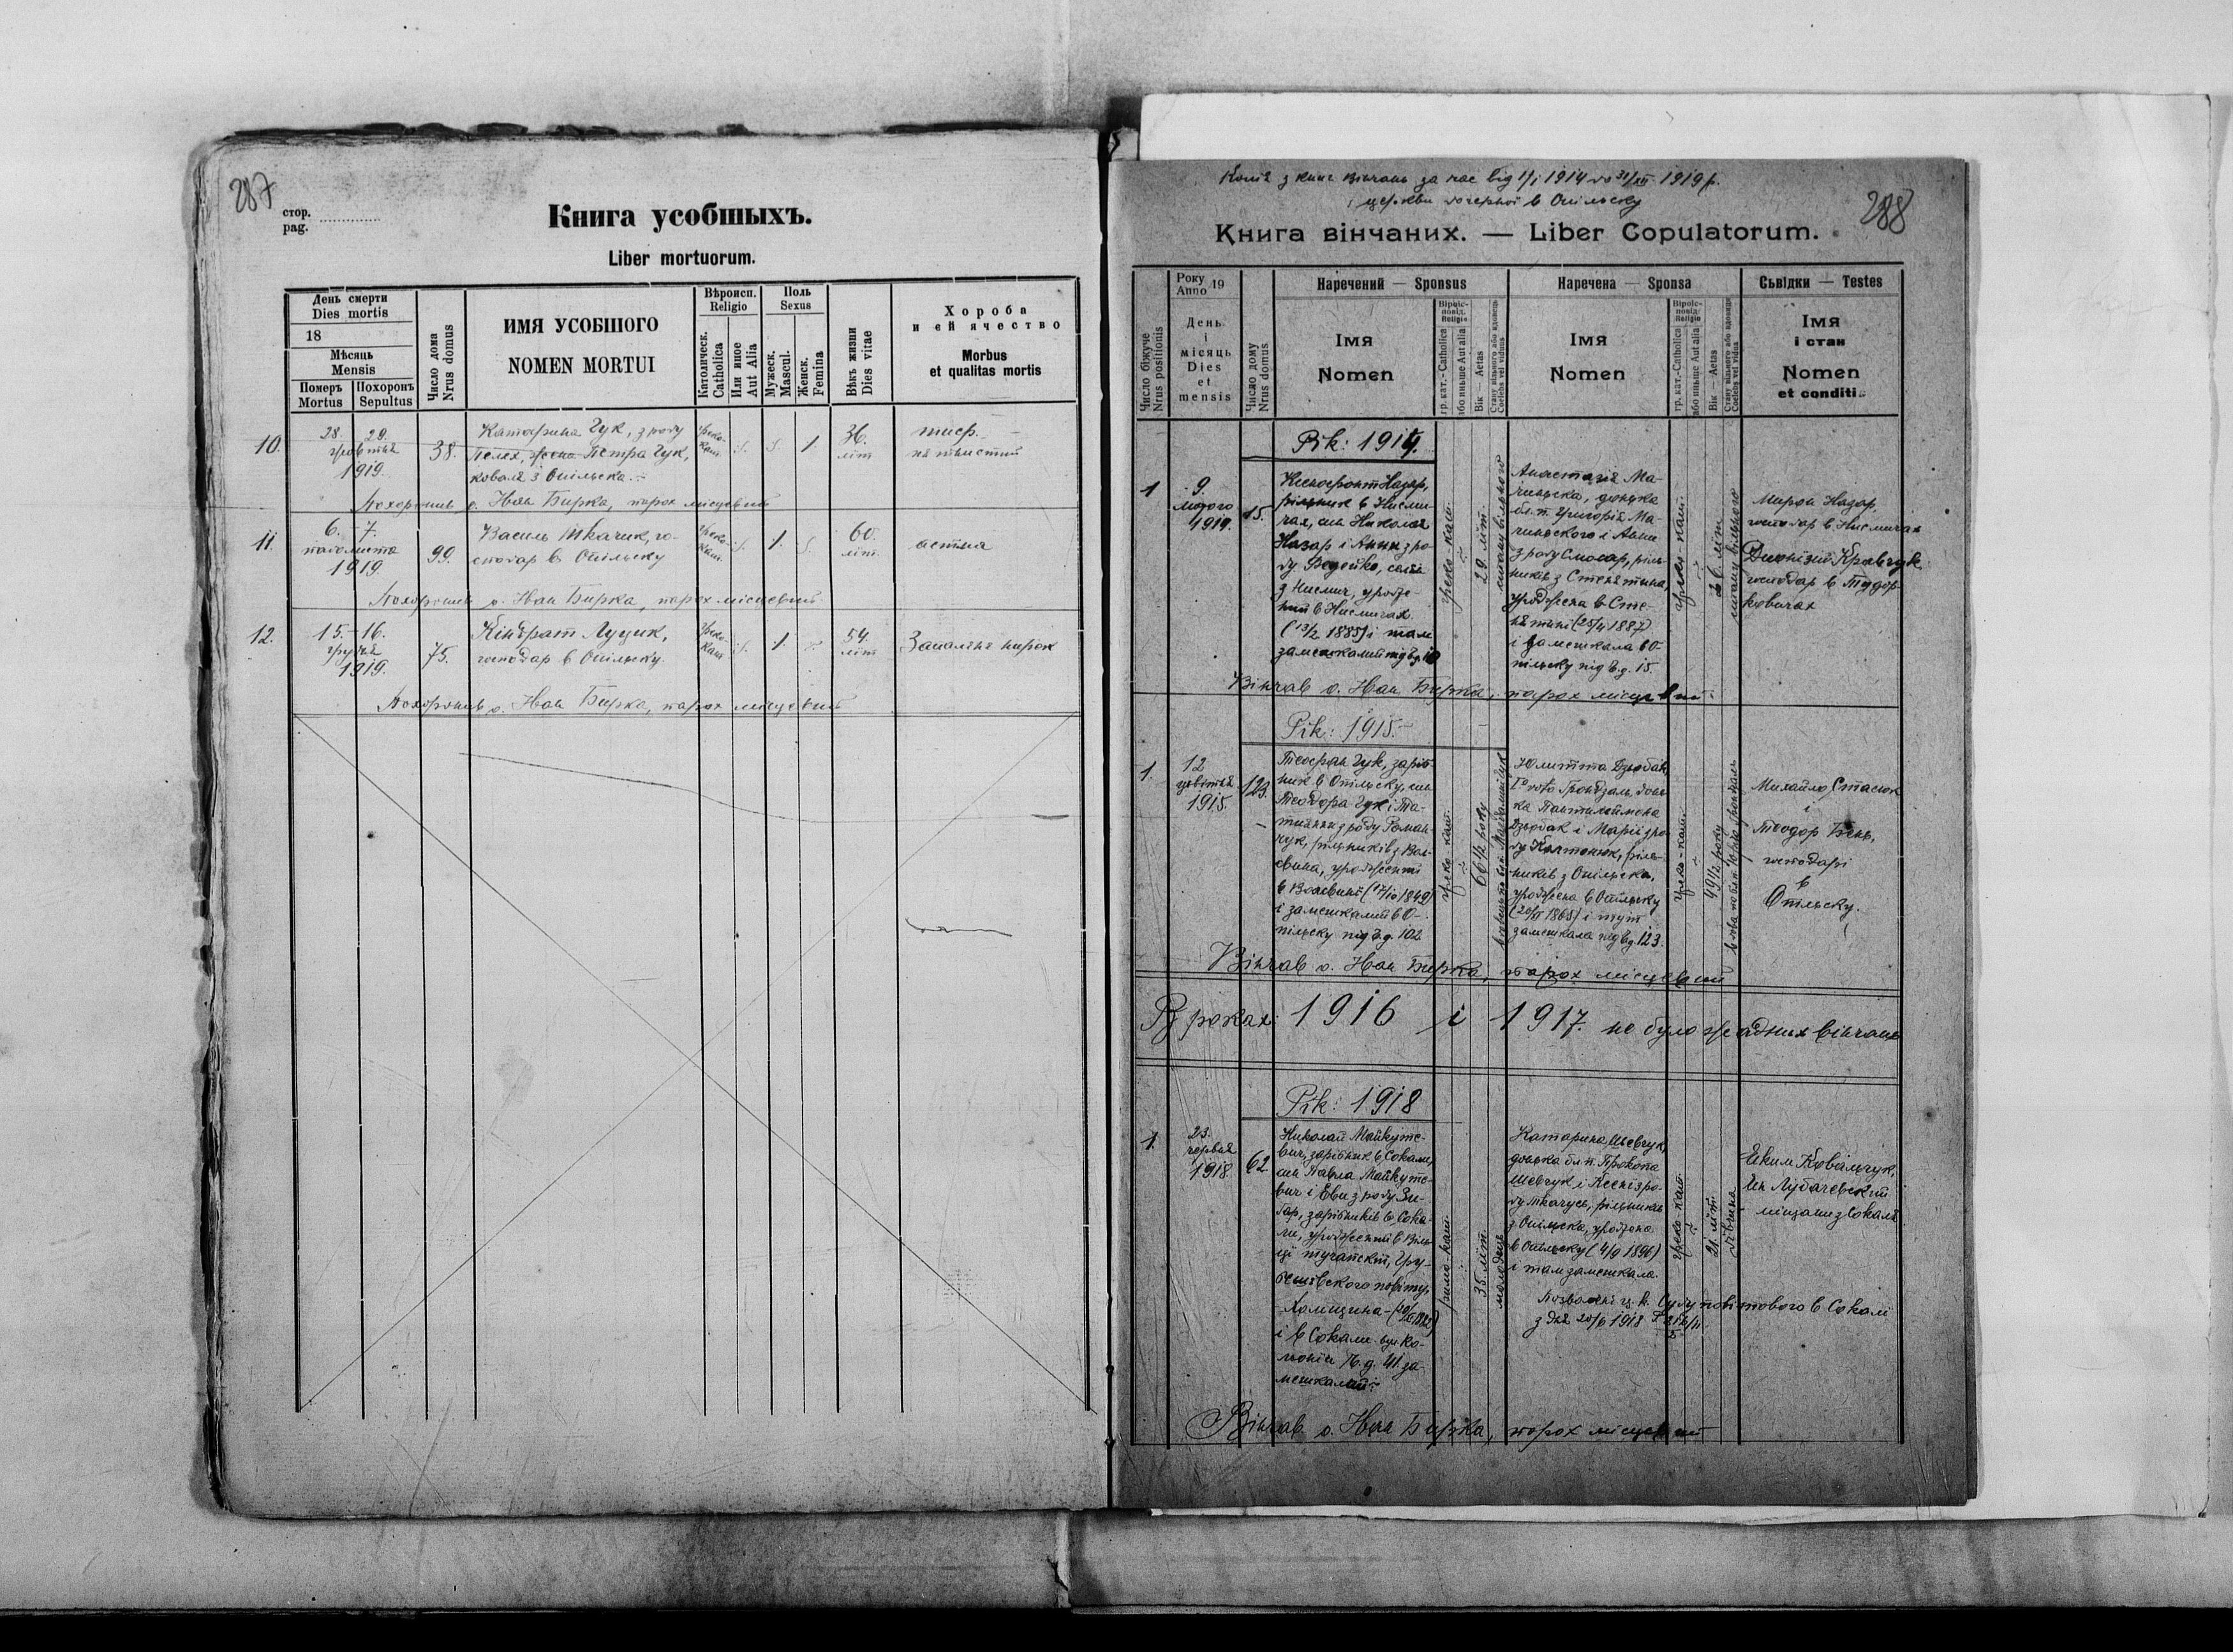 287
стор.
pag.
Книга усобшыхъ.
Liber mortuorum.
День смерти
Dies mortis
18
Мѣсяць
Mensis
Померъ
Mortus
Похоронъ
Sepultus
Число дома
Nrus domus
ИМЯ УСОБШОГО
NOMEN MORTUI
Вѣроисп.
Religio
Католическ.
Catholica
Или иное
Aut Alia
Поль
Sexus
Мужеск.
Mascul.
Женск.
Femina
Вѣкъ жизни
Dies vitae
Хороба
и ей ячество
Morbus
et qualitas mortis
10.
28. 29.
жовтня
1919.
38.
Катарина Гук, з роду
Пелех, жена Петра Гук,
коваля з Опільска.
греко-
кат.
1.
36.
літ
тиф
плямистий
Похоронив о. Іван Бирка, парох місцевий
11.
6. - 7.
падолиста
1919.
99.
Василь Ткачик, го-
сподар в Опільску
греко-
кат.
1.
60.
літ
астма
Похоронив о. Іван Бирка, парох місцевий
12.
15.-16.
грудня
1919.
75.
Кіндрат Луцик,
господар в Опільску.
греко-
кат
1.
54.
літ
Запалінє нирок
Похоронив о. Іван Бирка, парох місцевий
Копія з книг вінчань за час від 1/I 1914 до 31/XII 1919 р.
церкви дочерної в Опільску
288
Книга вінчаних. — Liber Copulatorum.
Число біжуче
Nrus positionis
Року
Anno 19
День
і
місяць
Dies
et
mensis
Число дому
Nrus domus
Наречений — Sponsus
Імя
Nomen
Віроіс-
повід.
Religio
гр. кат.-Catholica
або иньше Aut alia
Вік — Aetas
Стану вільного або вдовець
Coelebs vel viduus
Наречена — Sponsa
Імя
Nomen
Віроіс-
повід.
Religio
гр. кат.-Catholica
або иньше Aut alia
Вік — Aetas
Стану вільного або вдовиця
Coelebs vel vidua
Сьвідки — Testes
Імя
і стан
Nomen
et conditio
Рік: 1914.
1
9.
лютого
1914.
15.
Ксенофонт Назар,
рільник в Нисми-
чах, син Николая
Назар і Анни з ро-
ду Ведейко, селян
з Нисмич, уродже-
ний в Нисмичах
(13/2 1885) і там
замешкалий під ч.д. 10
греко-кат.
29. літ
стану вільного
Анастазія Ма-
чинська, донька
бл. п. Григорія Ма-
чинського і Анни
з роду Смолар, ріль-
ників з Стенятина,
уроджена в Сте-
нятині (25/4 1887)
і замешкала в О-
пільску під ч.д. 15.
греко-кат.
26. літ
стану вільного
Мирон Назар,
господар в Нисмичах
Дионізий Кравчук
господар в Тудор-
ковичах
Вінчав о. Іван Бирка, парох місцевий.
Рік: 1915.
1.
12
цвітня
1915.
123.
Теофан Гук, заріб-
ник в Опільску, син
Теодора Гук і Та-
тианни з роду Роман-
чук, рільників з Вол-
свина, уроджений
в Волсвині (17/10 1849)
і замешкалий в О-
пільску під ч.д. 102
греко-кат.
66 1/2 року
Юлитта Дзьобак,
1° voto Грондзаль, донь-
ка Пантилеймона
Дзьобак і Марії з ро-
ду Колтонюк, ріль-
ників з Опільска,
уроджена в Опільску
і тут
замешкала під ч.д. 123.
греко-кат.
49 1/2 року
Михайло Стасюк
і
Теодор Бень,
господарі
в
Опільску.
Вінчав о. Іван Бирка, парох місцевий
В роках: 1916 і 1917. не було жадних вінчань
Рік: 1918
1.
23.
червня
1918.
62
Николай Майкуте-
вич, зарібник в Сокали,
син Павла Майкуте-
вич і Еви з роду
зарібників в Сока-
ли, уроджений в Віль-
ці тучапскій, Гру-
бешівского повіту,
Холмщина
і в Сокали вул. Ко-
льонія Ч. д. 41 за-
мешкалий
римо-кат.
35. літ.
молодець
Катарина Шевчук,
донька бл. п. Прокопа
Шевчук і Ксені з ро-
ду Ткачук, рільників
з Опільска, уроджена
в Опільску (4/9 1896)
і там замешкала.
греко-кат.
21. літ
дівчина
Яким Ковальчук,
Ян Лубачевский
міщани з Сокаля
Позволенє ц. к. Суду повітового в Сокали
з дня 20/6 1918
Вінчав о. Іван Бирка, парох місцевий